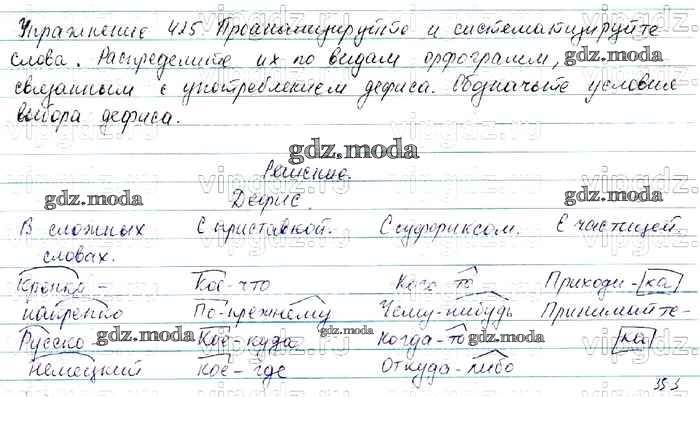 Упражнение 425 Проанализируйте и систематизируйте
слова. Распределите их по видам орфограмм,
связанным с употреблением дефиса. Обозначьте условия
выбора дефиса.
gdz.moda
Решение.
Дефис.
В сложных С приставкой. С суффиксом. С частицей.
словах.
Крепко- Кое-что Кого-то Приходи-ка
накрепко По-прежнему Чему-нибудь Примите-
Русско- Кое-куда Когда-то ка
немецкий кое-где Откуда-либо
353